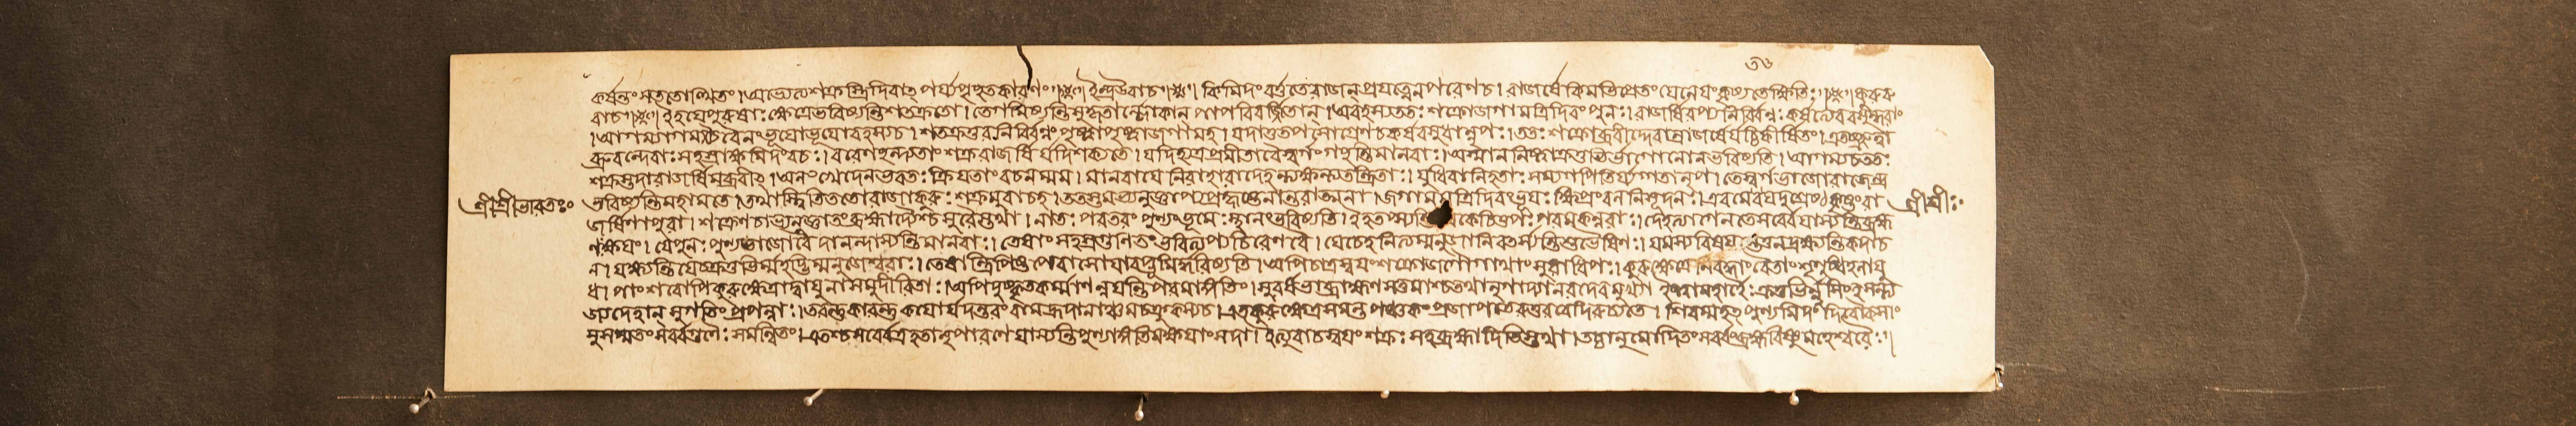 ৩৬
কর্ষন্তং সততোত্থিতং। অভ্যেত্যশক্রস্ত্রিদিবাৎ পর্য্যপৃচ্ছতকারণং।।ইন্দ্রউবাচ।। কিমিদং বর্ত্ততেরাজন্ প্রযত্নেনপরেণচ। রাজর্ষেকিমভিপ্রেতং যেনেযংকৃষ্যতেক্ষিতিঃ।।কুরুরু
বাচ।।ইহযেপুরুষাঃক্ষেত্রেমরিষ্যন্তিশতক্রতো। তেগমিষ্যন্তিসুকৃতাল্লোকান্ পাপবিবর্জ্জিতান্। অবহস্যততঃ শক্রোজগামত্রিদিবং পুনঃ। রাজর্ষিরপ্যনির্বিণ্ণঃ কর্ষত্যেববসুন্ধরাং
।আগম্যাগম্যচৈবেনংভূযোভূযোবহস্যচ। শতক্রতুরনির্বিণ্ণং পৃষ্ট্বাপৃষ্ট্বাজগামহ। যদাতুতপসোগ্রেণচকর্ষবসুধান্নৃপঃ। ততঃ শক্রোব্রবীদ্দেবান্রাজর্ষের্যচ্চিকীর্ষিতং। এতচ্ছ্রুত্বা
ব্রুবন্দেবাঃসহস্রাক্ষমিদংবচঃ। বরেণচ্ছন্দ্যতাং শক্ররাজর্ষির্যদিশক্যতে। যদিহ্যত্রপ্রমীতাবৈস্বর্গংগচ্ছন্তিমানবাঃ। অস্মাননিষ্ট্বাক্রতুভির্ভাগোনোনভবিষ্যতি। আগম্যচততঃ
শক্রস্তদারাজর্ষিমব্রবীৎ। অলংখেদেনভবতঃ ক্রিযতাংবচনম্মম। মানবাযে নিরাহারাদেহন্ত্যক্ষ্যন্ত্যতন্দ্রিতাঃ। যুধিবানিহতাঃ সম্যগপিতির্য্যগ্গতানৃপ। তেস্বর্গভাজোরাজেন্দ্র
শ্রীশ্রীভারতঃ ভবিষ্যন্তিমহামতে। তথাস্ত্বিতিততোরাজাকুরুঃ শক্রমুবাচহ। ততস্তমভ্যনুজ্ঞাপ্যপ্রহৃষ্টেনান্তরাত্মনা। জগামত্রিদিবংভূযঃ ক্ষিপ্রংবলনিসূদনঃ। এবমেতদ্যদুশ্রেষ্ঠকৃষ্টংরা শ্রীশ্রীঃ
জর্ষিণাপুরা। শক্রেণচাভ্যনুজ্ঞাতংব্রহ্মাদ্যৈশ্চসুরৈস্তথা। নাতঃ পরতরং পুণ্যংভূমেঃ স্থানংভবিষ্যতি। ইহতপ্স্যন্তি কেচিত্তপঃ পরমকন্নরাঃ। দেহত্যাগেনতেসর্বেযাস্যন্তিব্রহ্ম
ণঃক্ষযং। যেপুনঃ পুণ্যভাজোবৈ দানন্দাস্যন্তিমানবাঃ। তেষাং সহস্রগুণিতংভবিষ্যত্যচিরেণবৈ। যেচেহনিত্যম্মনুজানিবৎস্যন্তিশুভৈষিণঃ। যমস্যবিষযন্তেতুনদ্রক্ষ্যন্তিকদাচ
ন। যক্ষ্যন্তিযেচক্রতুভির্ম্মহদ্ভির্ম্মনুজেশ্বরাঃ। তেষান্ত্রিপিষ্টপেবাসোযাবদ্ভূমির্দ্ধরিষ্যতি। অপিচাত্রস্বযংশক্রোজগৌগাথাংসুরাধিপঃ। কুরুক্ষেত্রেনিবদ্ধাংবৈতাংশৃণুষ্বহলাযু
ধ। পাংশবোপিকুরুক্ষেত্রাদ্বাযুনাসমুদীরিতাঃ। অপিদুষ্কৃতকর্ম্মাণন্নযন্তিপরমাঙ্গতিং। সুরর্ষভাব্রাহ্মণসত্তমাশ্চতথানৃগাদ্যানরদেবমুখ্যাঃ ইষ্ট্বামহার্হৈঃ ক্রতুভির্নৃসিংহসন্ত্য
জ্যদেহান্ সুগতিং প্রপন্নাঃ। তরন্তুকারন্তুকযোর্যদন্তরং রামহ্রদানাঞ্চমচক্রুকস্যচ। এতৎকুরুক্ষেত্রসমন্তপঞ্চকংপ্রজাপতেরুত্তরবেদিরুচ্যতে। শিবম্মহৎপুণ্যমিদংদিবৌকসাং
সুসম্মতংসর্বগুণৈঃ সমন্বিতং। এতশ্চসর্বেত্রহতানৃপারণে যাস্যন্তিপুণ্যাঙ্গতিমক্ষযাংসদা। ইত্যুবাচস্বযংশক্রঃ সহব্রহ্মাদিভিস্তথা। তচ্চানুমোদিতংসর্বংব্রহ্মবিষ্ণুমহেশ্বরৈঃ।।